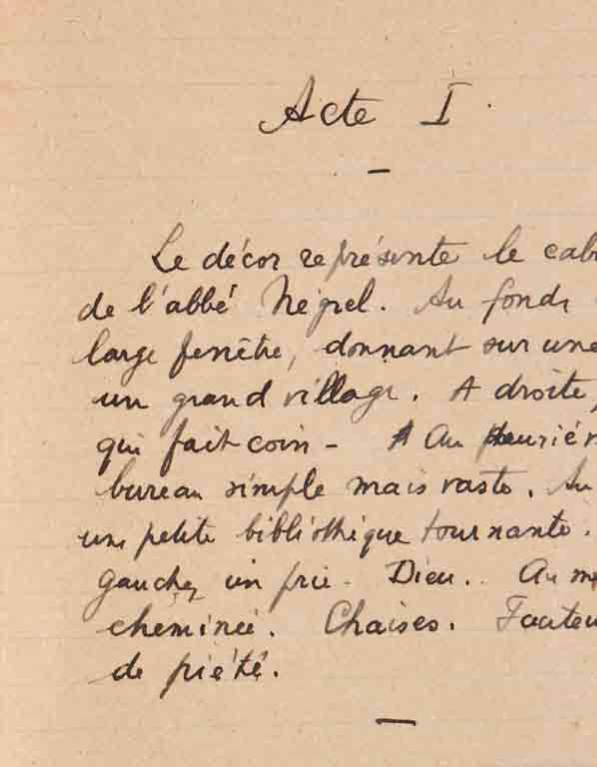 Acte I.
Le décor représente le cab
de l'abbé Négrel. Au fond,
large fenêtre, donnant sur une
un grand village. A droite,
qui fait coin - Au
bureau simple mais vaste. Au
une petite bibliothèque tournante.
gauche, un prie-Dieu.. Au m
cheminée. Chaises. Fauteu
de piété.